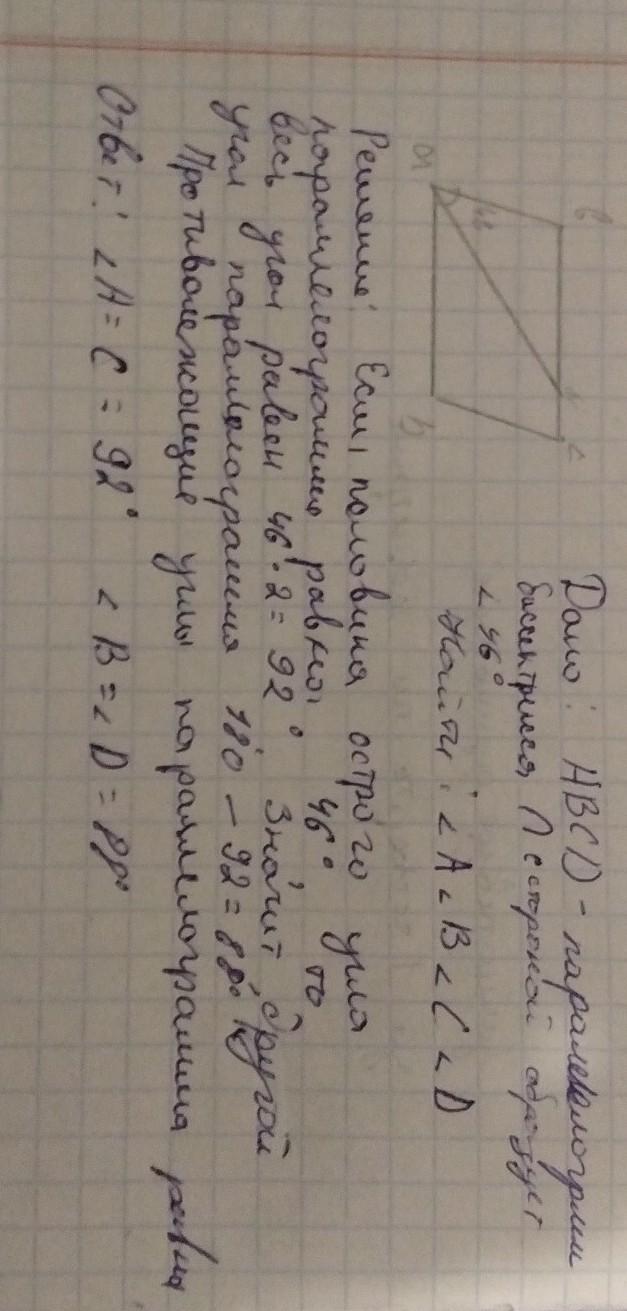 Дано: ABCD - паралелограмм
биссектриса П стороной образует
< 46°
Найти: < A < B < C < D
B
C
46
A
D
Решение: Если, половина острого угла
параллелограмма равна, 46° то,
весь угол равен 46·2=92° Значит, другой
угол параллелограмма 180 - 92 = 88°
Противолежащие углы параллелограмма равны
Ответ: < A = C = 92° < B = < D = 88°